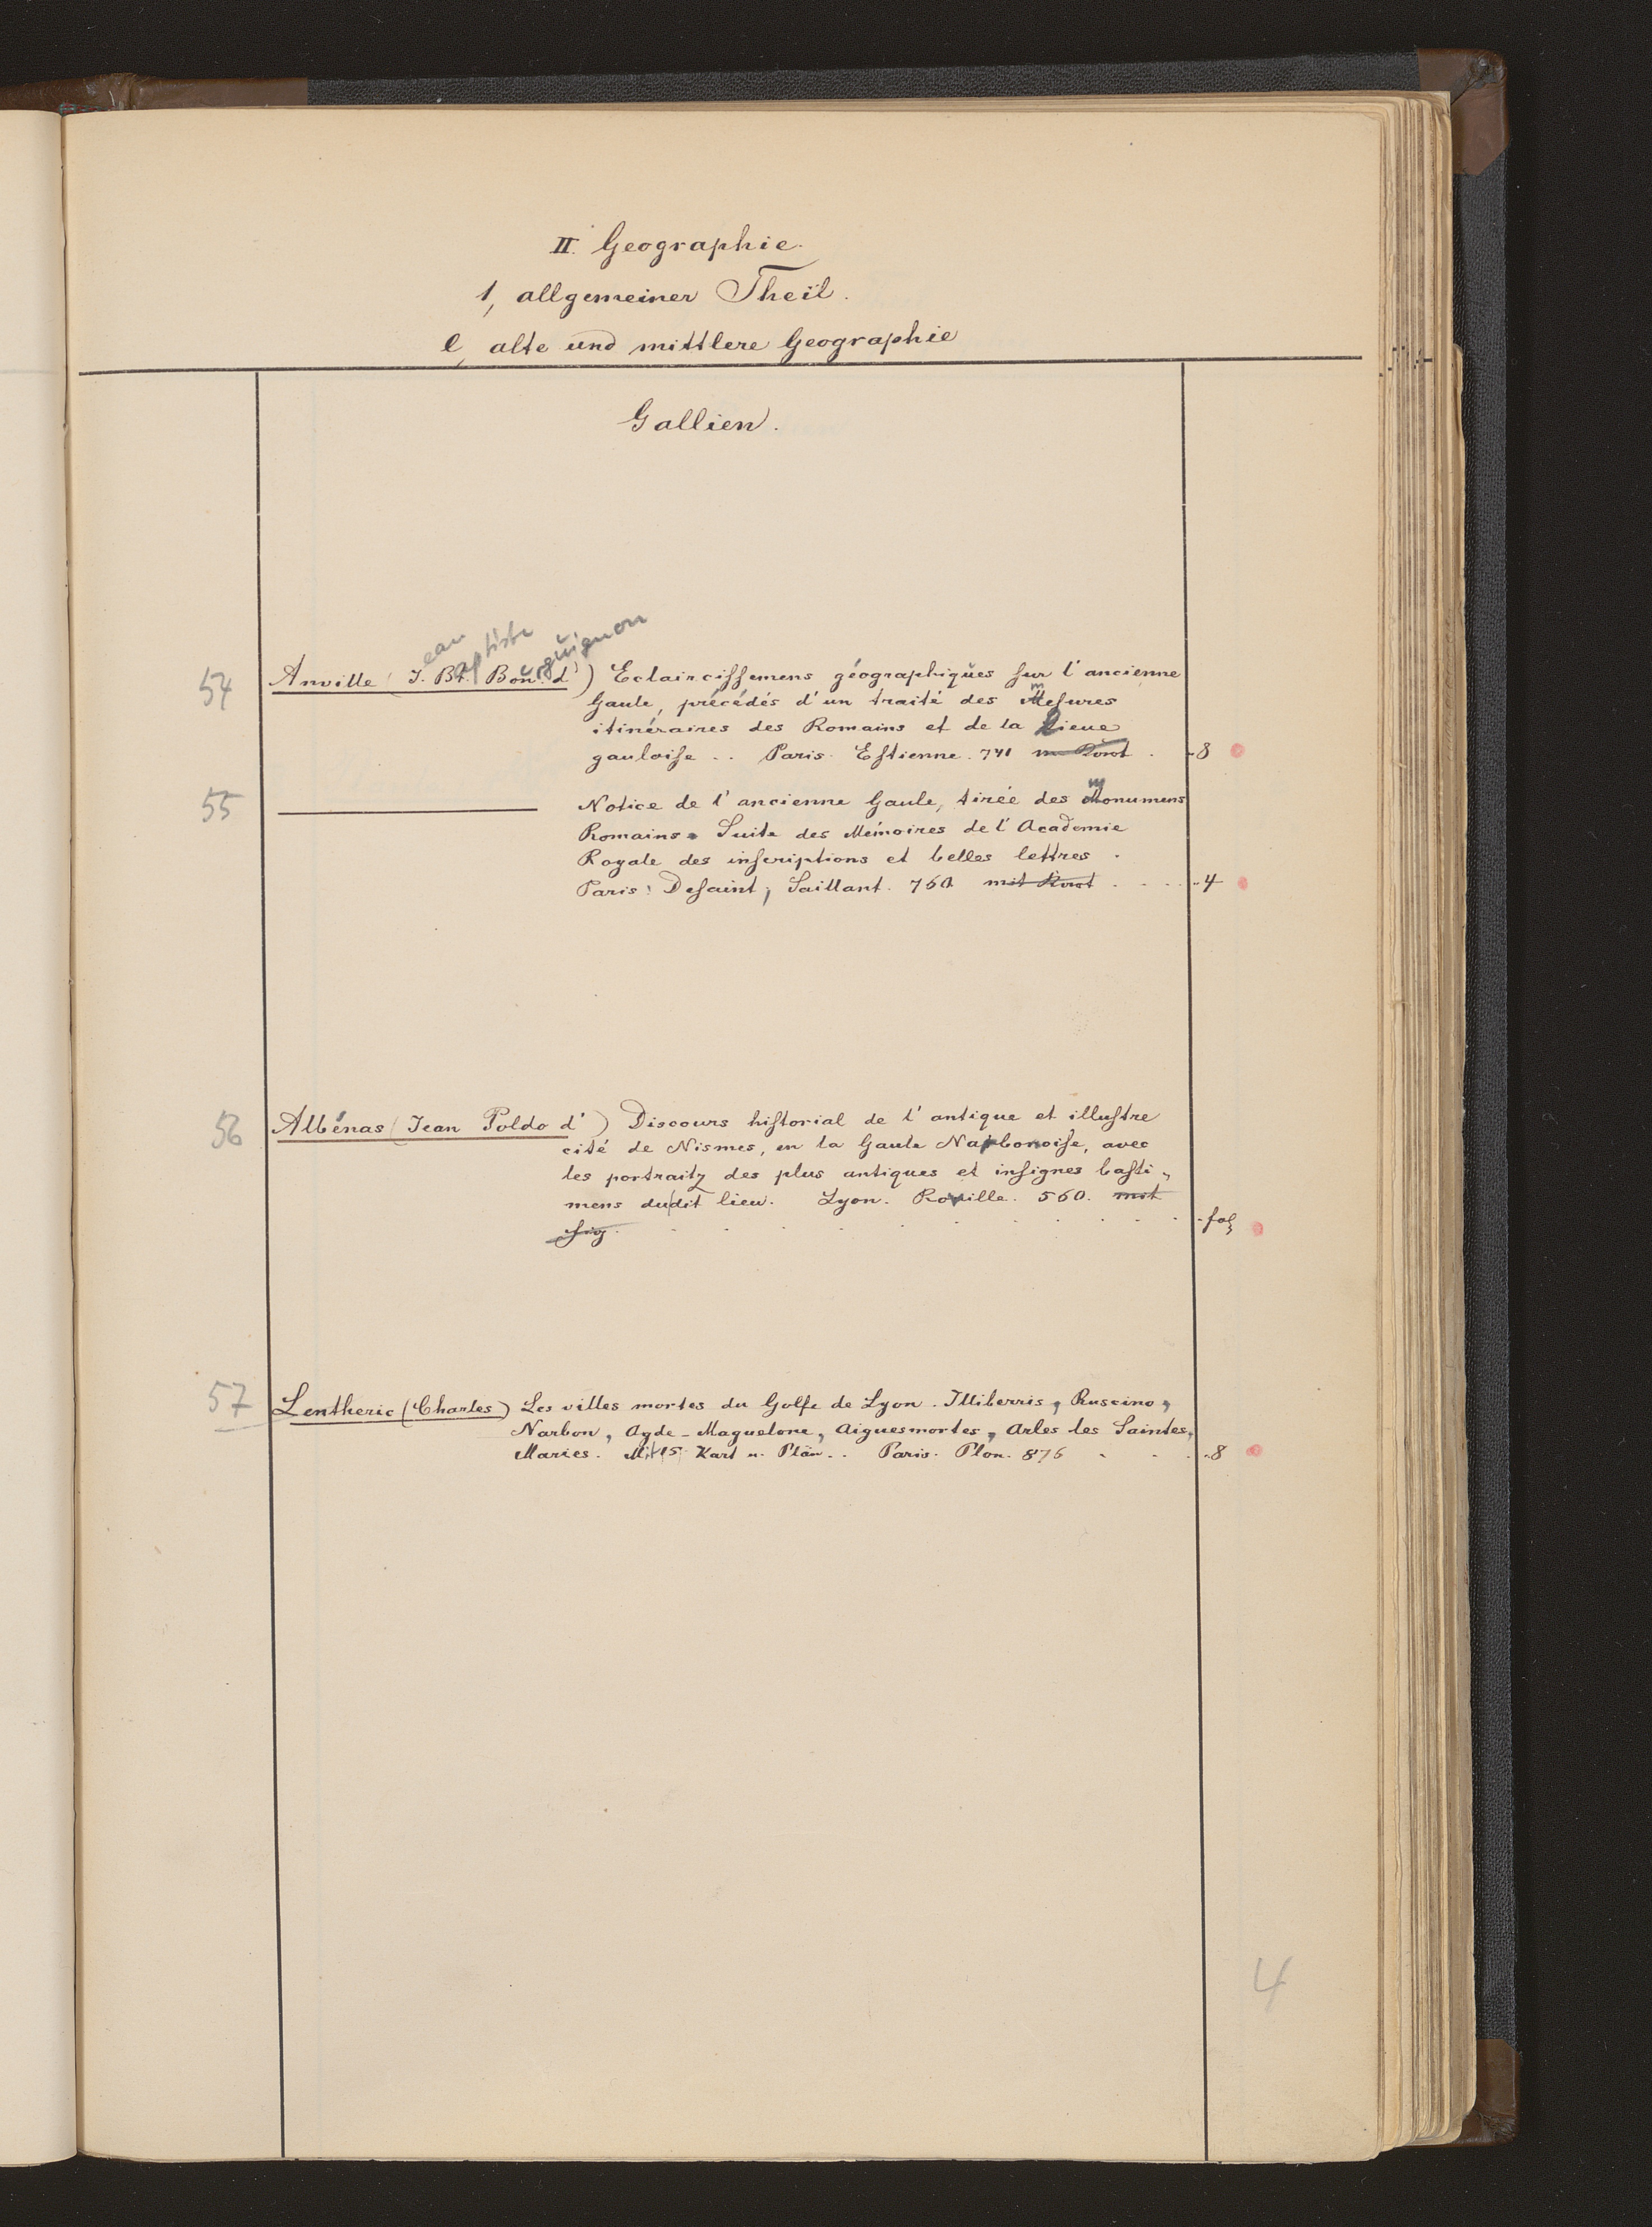 II. Geographie.
1, allgemeiner Theil.
e, alte und mittlere Geographie
Gallien.
ean aptiste rguignon
54 Anville (J. Bt. Bou. d') Eclaircissemens géographiques sur l'ancienne
Gaule, précédés d'un traité des mesures
itinéraires des Romains et de la Lieue
gauloise .. Paris. Estienne. 741 . 8
55 ——— Notice de l'ancienne Gaule, tirée des monumens
Romains. Suite des Mémoires de l'Academie
Royale des inscriptions et belles lettres .
Paris: Desaint, Saillant. 760 mit . . . . 4
56 Albénas (Jean Poldo d') Discours historial de l'antique et illustre
cité de Nismes, en la Gaule Narbonoise, avec
les portraitz des plus antiques et insignes basti-
mens dudit lieu. Lyon. Roville. 560. mit
fig. . . . . . . . . . fol
57 Lentheric (Charles) Les villes mortes du Golfe de Lyon. Illiberris, Ruscino,
Narbon, Agde - Maguelone, Aiguesmortes, Arles les Saintes,
Maries. Mit 15 Kart u. Plän .. Paris. Plon. 876 . . . 8
4